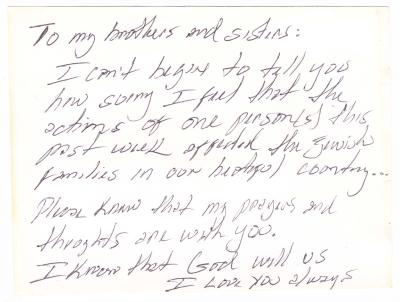 To my brothers and sisters:
I can't begin to tell you
how sorry I feel that the
actions of one person(s) this
past week affected the Jewish
families in our country...
Please know that my prayers and
thoughts are with you.
I know that God will us
I love you always